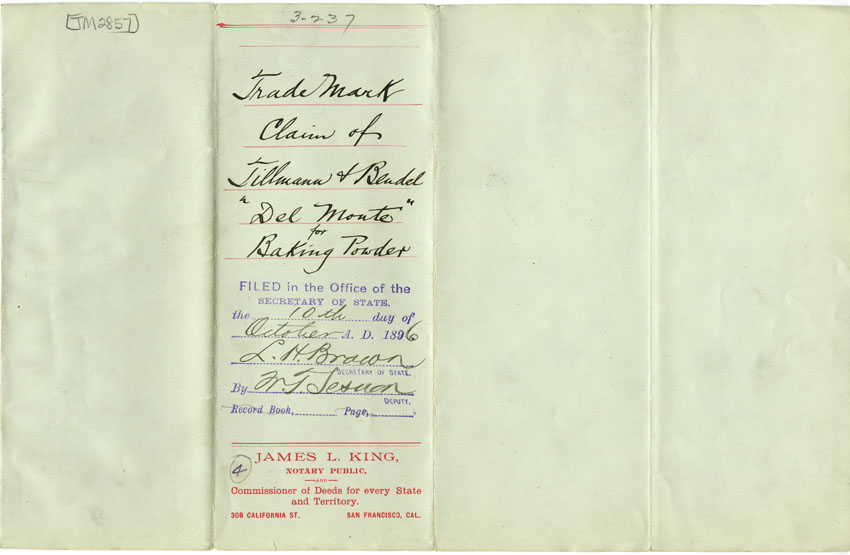 [TM2857]
3-237
Trade Mark
Claim of
Tillmann & Bendel
"Del Monte"
for
Baking Powder
FILED in the Office of the
SECRETARY OF STATE.
the 10th day of
October A. D. 1896
L. H. Brown
SECRETARY OF STATE.
By W. T. Sesnon
DEPUTY.
Record Book, Page,
4
JAMES L. KING,
NOTARY PUBLIC,
AND
Commissioner of Deeds for every State
and Territory.
308 CALIFORNIA ST. SAN FRANCISCO, CAL.